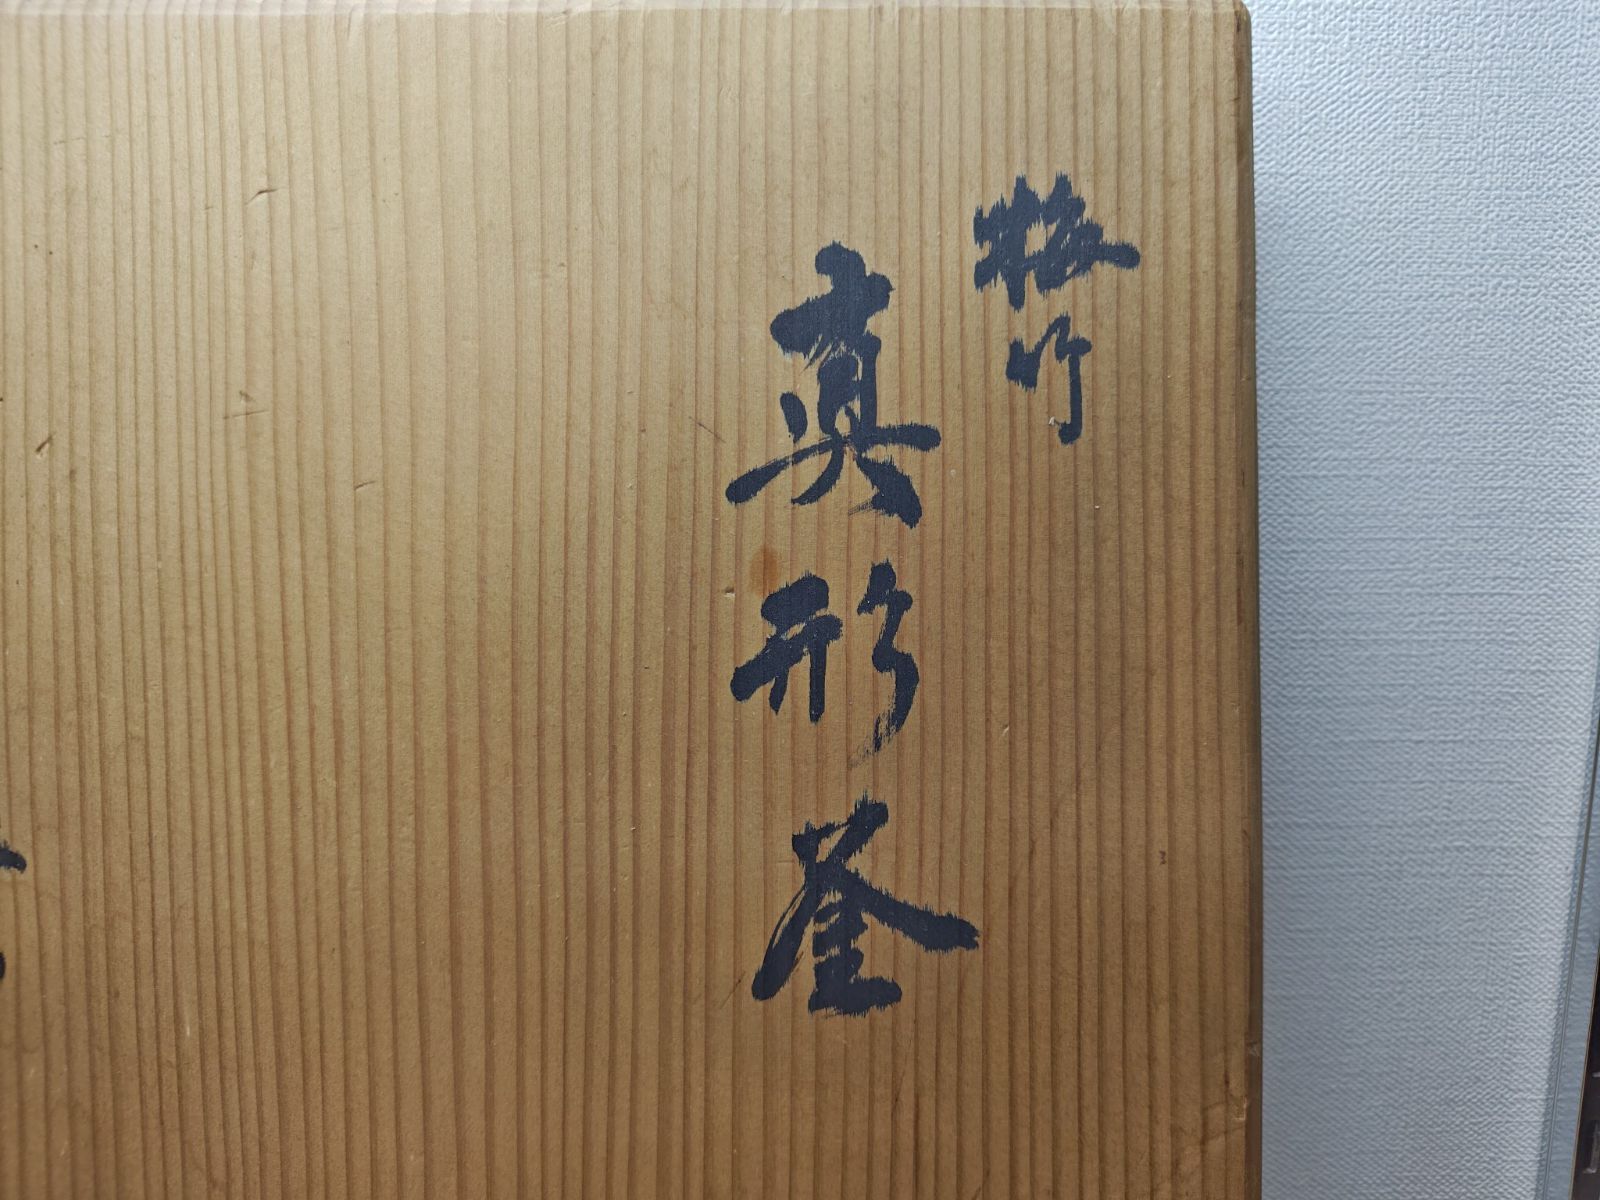 梅竹
真形釜